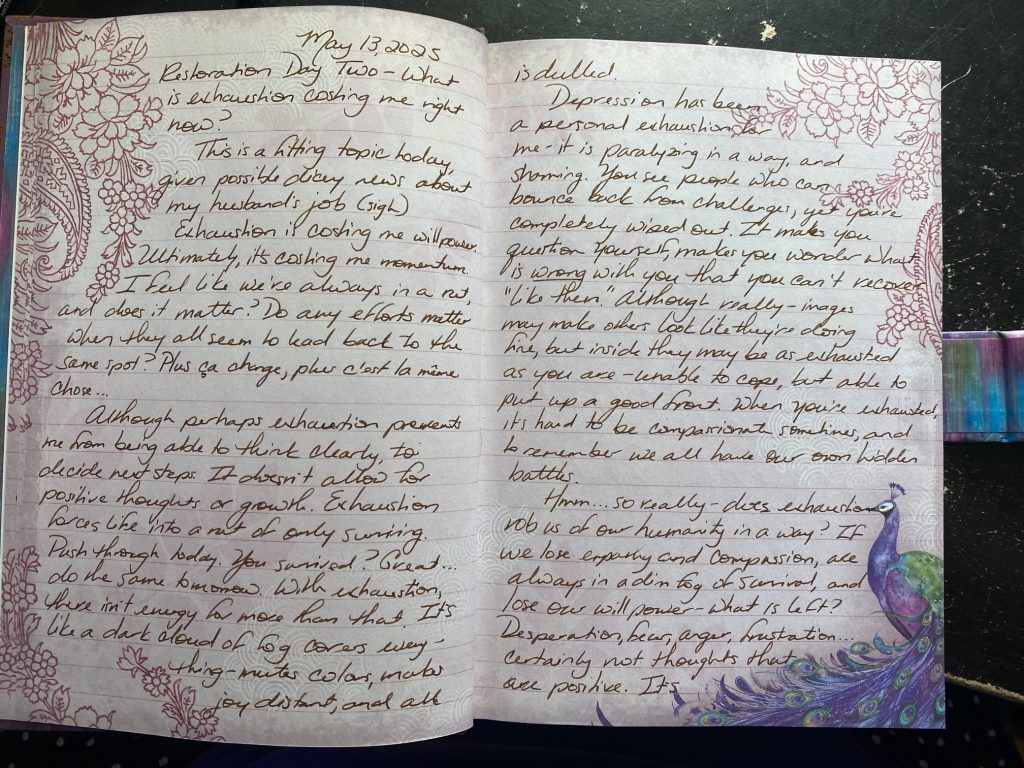 May 13, 2025
Restoration Day Two - What
is exhaustion costing me right
now?
This is a fitting topic today,
given possible dicey news about
my husband's job (sigh)
Exhaustion is costing me willpower.
Ultimately, it's costing me momentum.
I feel like we're always in a rut,
and does it matter? Do any efforts matter
when they all seem to lead back to the
same spot? Plus ça change, plus c'est la même
chose...
Although perhaps exhaustion prevents
me from being able to think clearly, to
decide next steps. It doesn't allow for
positive thoughts or growth. Exhaustion
forces life into a rut of only surviving.
Push through today. You survived? Great...
do the same tomorrow. With exhaustion,
there isn't energy for more than that. It's
like a dark cloud of fog covers every-
thing - mutes colors, makes
joy distant, and all
is dulled.
Depression has been
a personal exhaustion for
me - it is paralyzing in a way, and
shaming. You see people who can
bounce back from challenges, yet you're
completely wiped out. It makes you
question yourself, makes you wonder what
is wrong with you that you can't recover
"like them." Although really - images
may make others look like they're doing
fine, but inside they may be as exhausted
as you are - unable to cope, but able to
put up a good front. When you're exhausted,
it's hard to be compassionate sometimes, and
to remember we all have our own hidden
battles.
Hmm... so really - does exhaustion
rob us of our humanity in a way? If
we lose empathy and compassion, are
always in a dim fog of survival, and
lose our will power - what is left?
Desperation, fear, anger, frustration...
certainly not thoughts that
are positive. It's